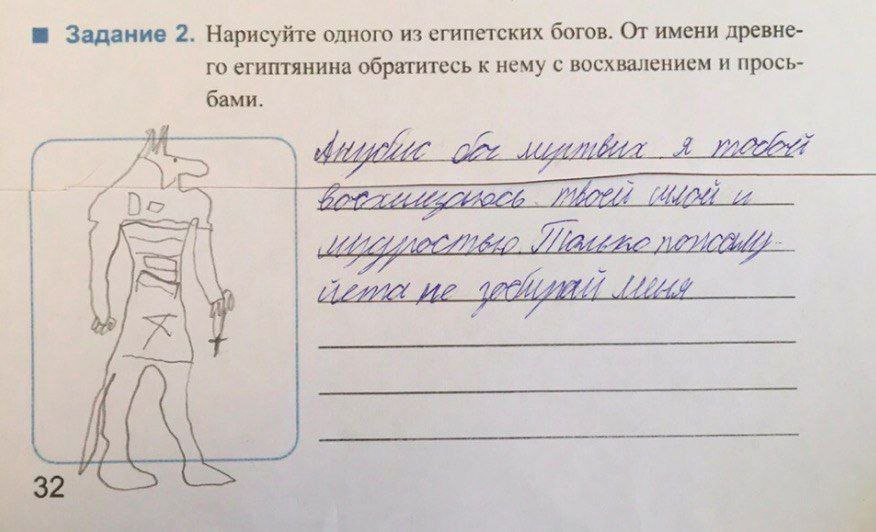 Задание 2. Нарисуйте одного из египетских богов. От имени древне-
го египтянина обратитесь к нему с восхвалением и прось-
бами.
Анубис бог мертвых я тобой
восхищаюсь твоей силой и
мудростью. Только пожалу-
йста не забирай меня
32